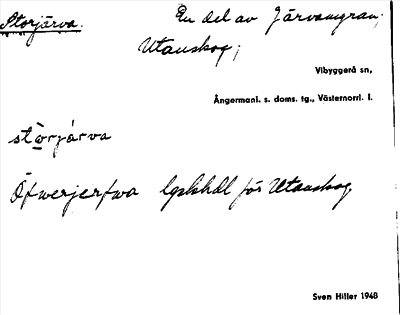 Storjärva. En del av Järvamyran;
Utanskog;
Vibyggerå sn,
Ångermanl. s. doms. tg., Västernorrl. l.
stòrjárva
Öfwerjerfwa lgskhdl för Utanskog
Sven Hiller 1948